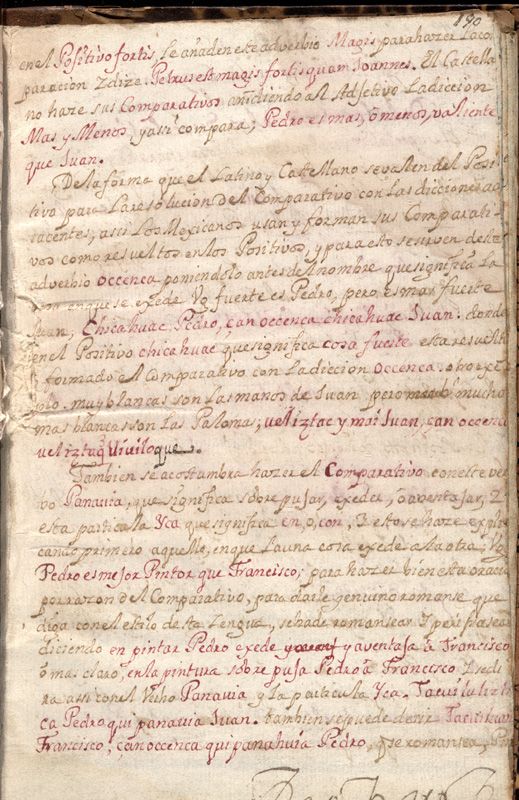 190
en el Positivo fortis, le añaden este adverbio Magis, para hazer la com
paracion Z dize. Petrus est magis fortis quam Joannes. El Castella
no haze sus Comparativos añidiendo al Adjetivo la diccion
Mas y Menos y assi compara, Pedro es mas, ò menos, valiente
que Juan.
De la forma que el Latino y Castellano se vallen del Posi
tivo para la resolucion del Comparativo con las dicciones ad
jacentes; assi Los Mexicanos usan y forman sus Comparati
vos como resueltos en los Positivos, y para esto se sirven deste
adverbio occenca poniendolo antes del nombre que significa La
en que se exede. Vg fuerte es Pedro, pero es mas fuerte
Juan, Chicahuac Pedro, çan occenca chicahuac Juan. donde
en el Positivo chicahuac que significa cosa fuerte esta resuelto
y formado el Comparativo con la diccion occenca. otro exē
plo. muy blancas son las manos de Juan pero mucho
mas blancas son las Palomas; veliztac y mai Juan, çan occenca
veliztaque.
Tambien se acostumbra hazer el Comparativo con este ver
bo Panavia, que significa sobre pujar, exeder, ò aventajar; Z
esta particula Yca que significa en, o, con. Z esto se haze expli
cando primero aquello, en que la una cosa exede a la otra; Vg
Pedro es mejor Pintor que Francisco; para hazer bien esta oracion
por razon del Comparativo, para darle genuino romanse que
diga con el estilo desta Lengua, se ha de romansear Z periphrasear
diciendo en pintar Pedro exede y aventaja à Francisco
ò mas claro, en la pintura sobre puja Pedro à Francisco. Z se di
ra assi con el Verbo Panavia y la particula Yca.
ca Pedro qui panavia Juan. tambien se puede dezir
Francisco, çan occenca qui panahuia Pedro, que romansea,